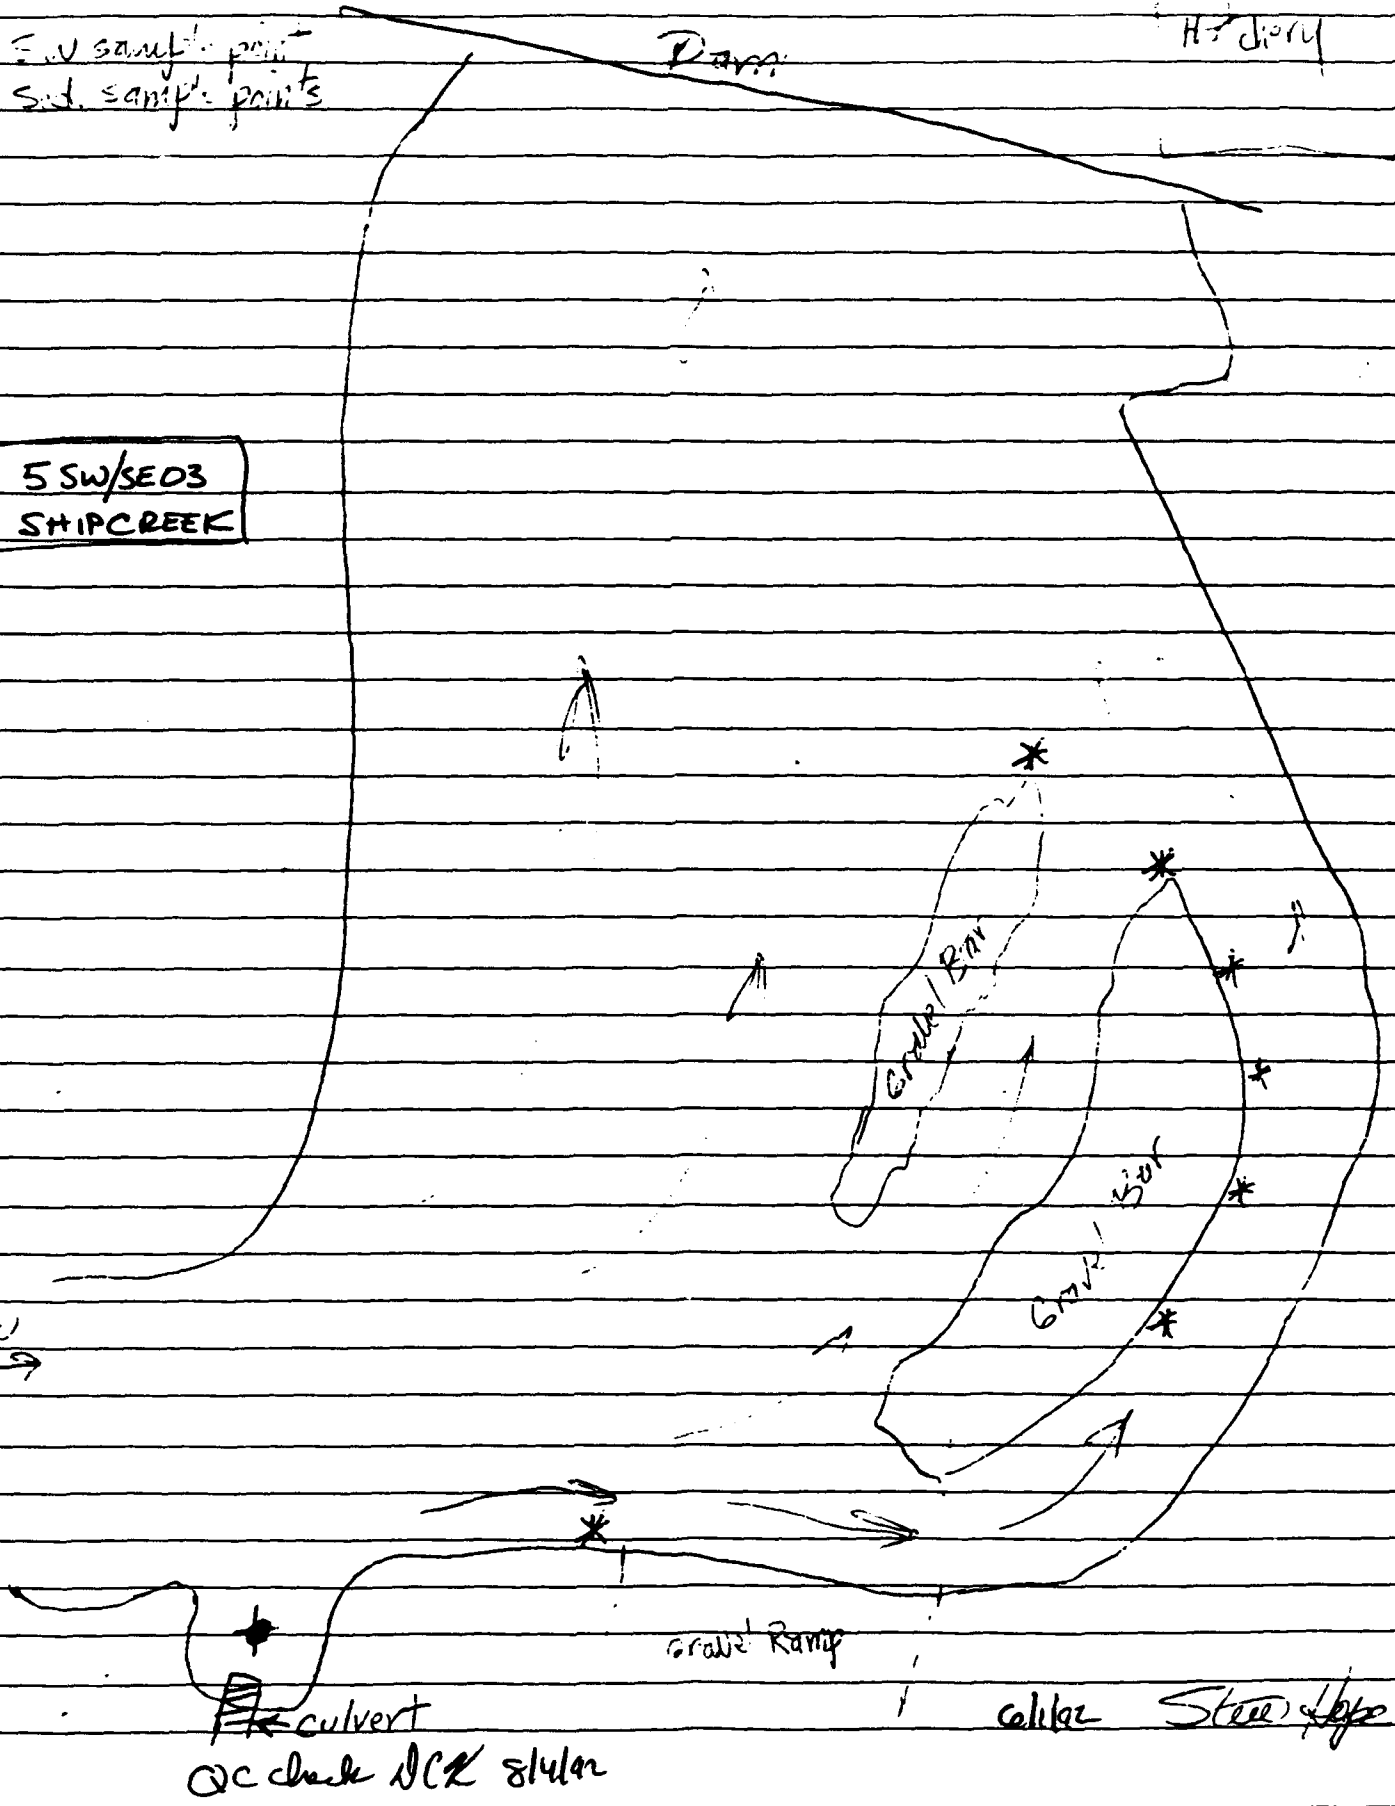 S.W sample point
Sed. sample points
Dam
Hatchery
5 SW/SE03
SHIPCREEK
Gravel Bar
Gravel Bar
Gravel Ramp
culvert
6/1/92 Steve Hope
QC check DCK 8/4/92